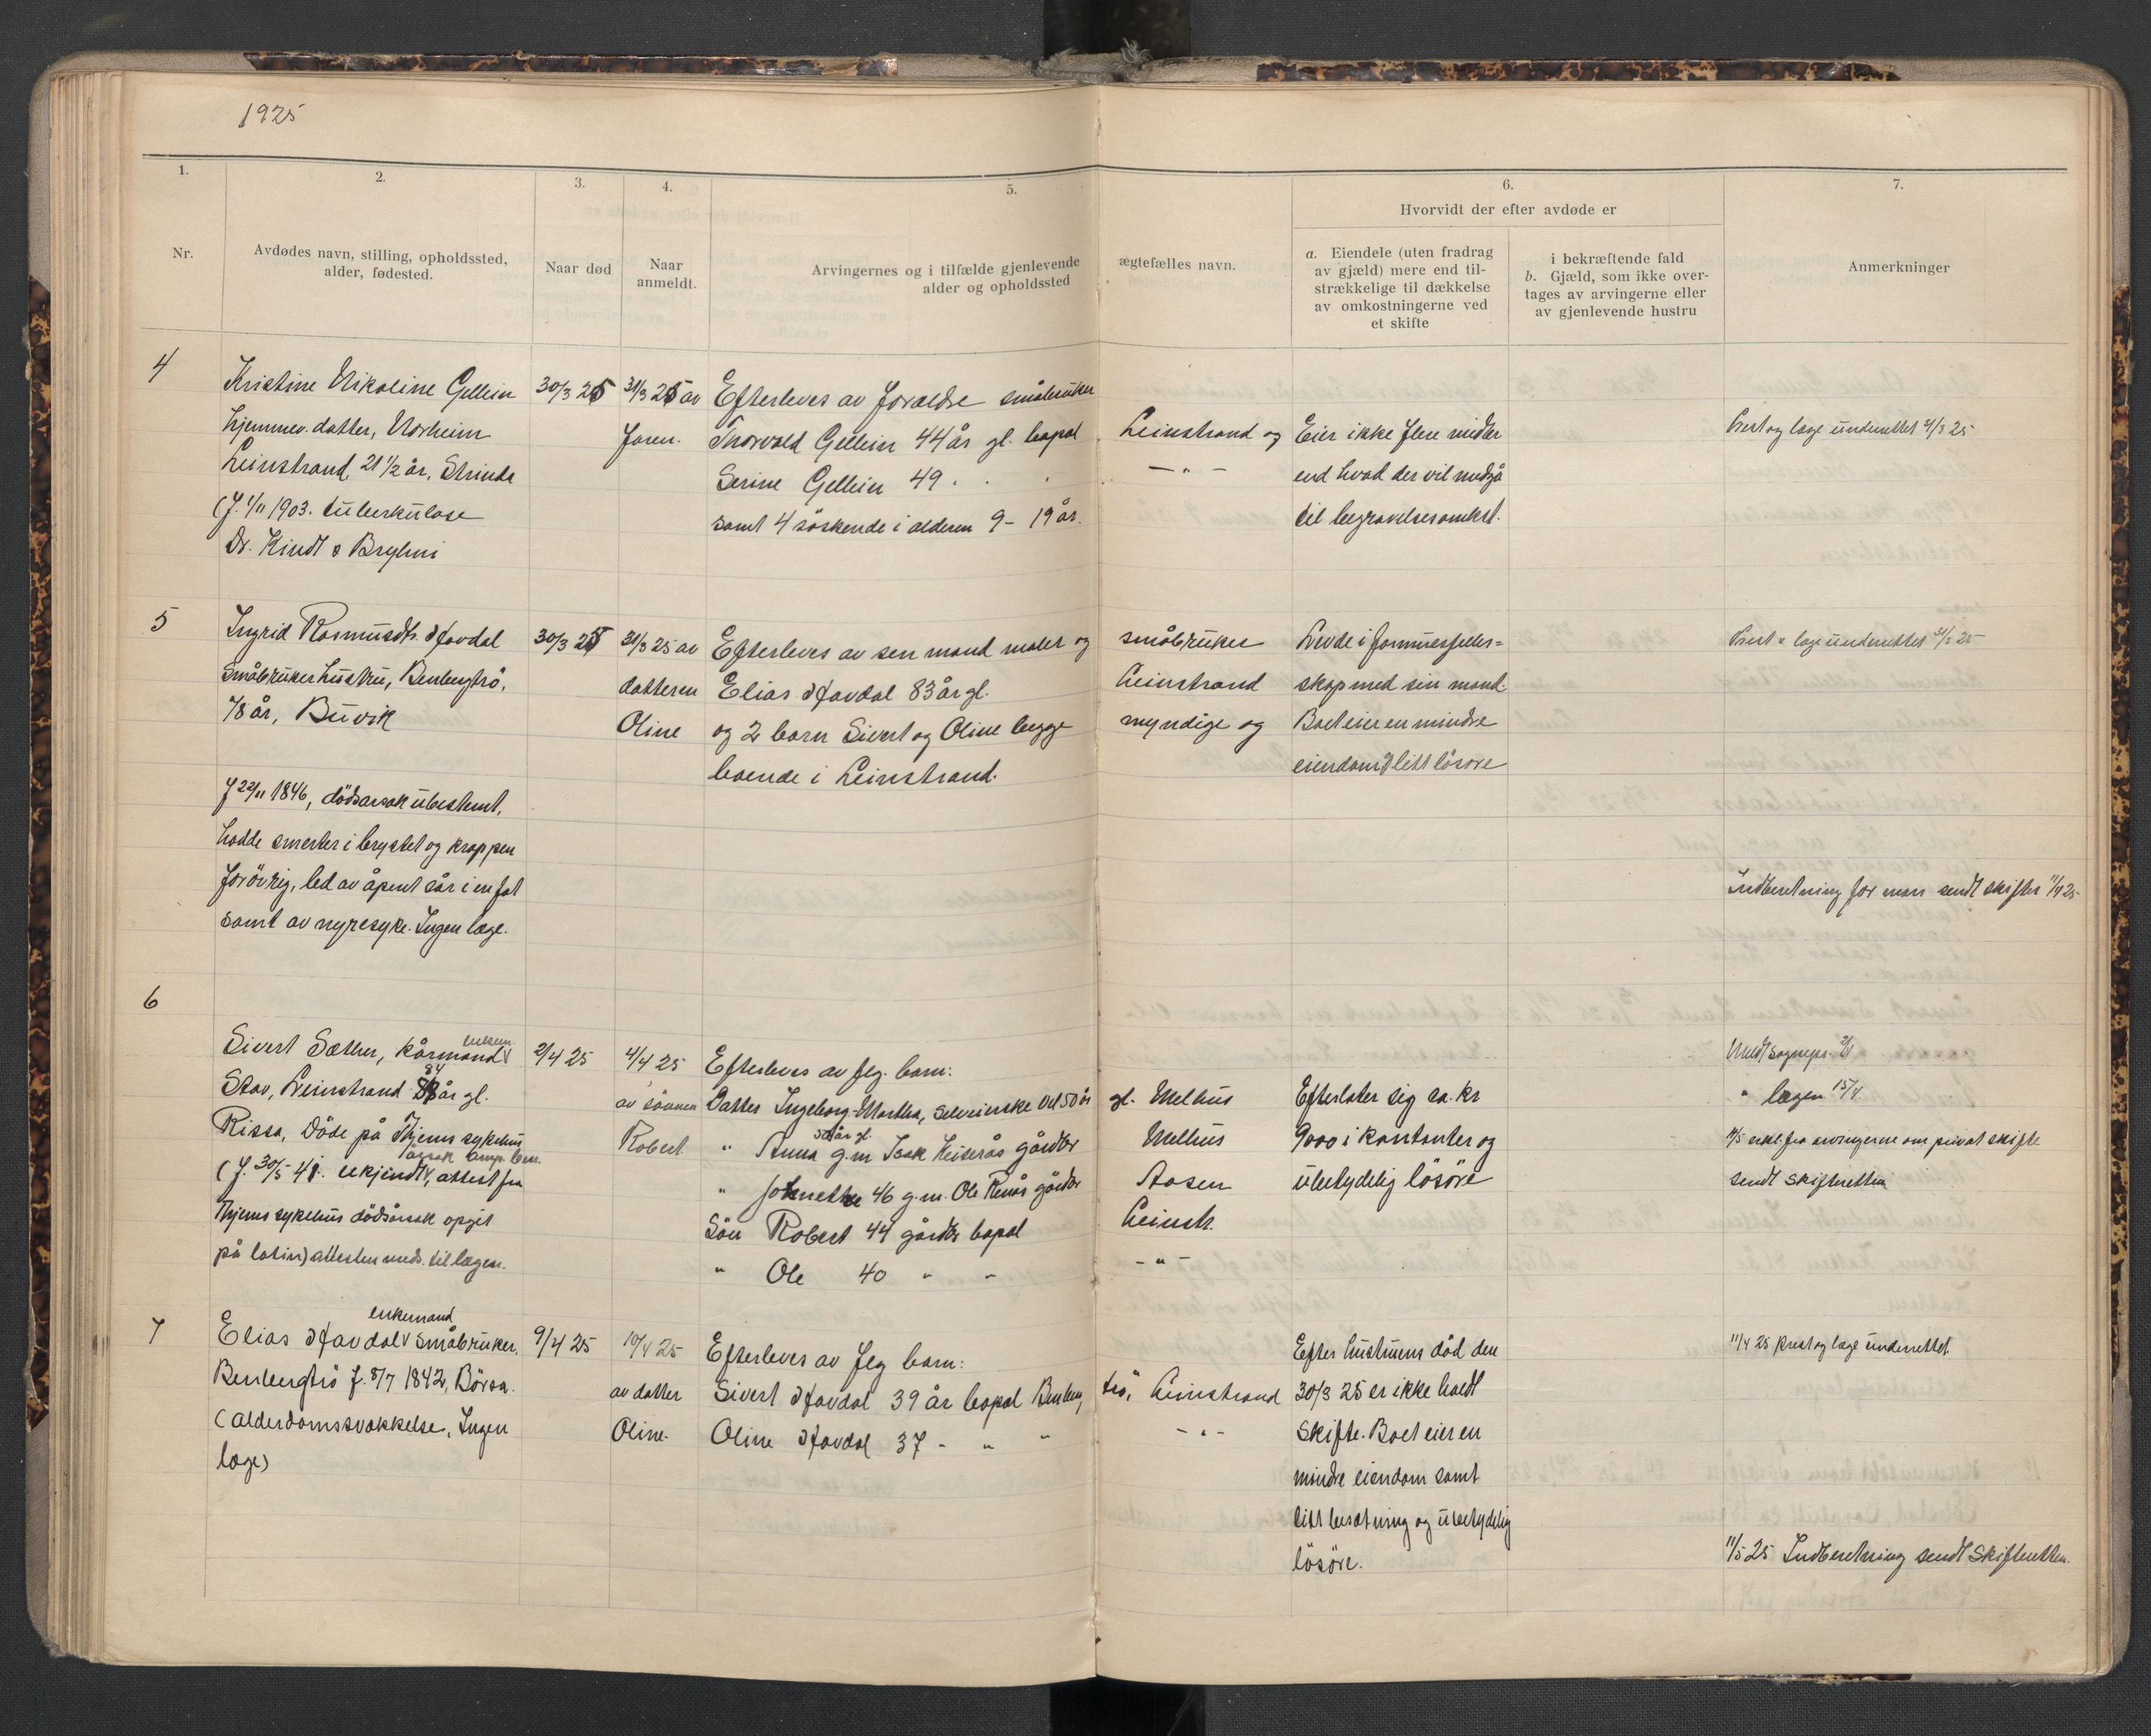 1925
1.
2.
3.
4.
5.
6.
7.
Nr.
Avdødes navn, stilling, opholdssted,
alder, fødested.
Naar død
Naar
anmeldt.
Arvingernes og i tilfælde gjenlevende ægtefælles navn.
alder og opholdssted
Hvorvidt der efter avdøde er
a. Eiendele (uten fradrag
av gjæld) mere end til-
strækkelige til dækkelse
av omkostningerne ved
et skifte
i bekræftende fald
b. Gjæld, som ikke over-
tages av arvingerne eller
av gjenlevende hustru
Anmerkninger
4
Kristine Nikoline Gellein
hjemmev. datter, Norheim
Leinstrand, 21 1/2 år, Strinda
(f. 1/11 1903. tuberkulose
Dr. Kindt & Bryhni
30/3 25
31/3 25 av
Faren.
Efterleves av forældre småbruker
Thorvald Gellein 44 år gl. bopæl Leinstrand og
Serine Gellein 49 " " " - " -
samt 4 söskende i alderen 9 - 19 år.
Eier ikke flere midler
end hvad der vil medgå
til begravelsesomkst.
Prest og læge underrettet 31/3 25
5
Ingrid Rasmusdtr.
Småbrukerhustru,
78 år, Buvik
f 22/11 1846, dödsarsak ubestemt,
hadde smerter i brystet og kroppen
forövrig, led av åpent sår i en fot
samt av nyresyke. Ingen læge.
30/3 25
31/3 25 av
datteren
Oline
Efterleves av sen mand maler og småbruker
Elias 83 år gl. Leinstrand
og 2 barn Sivert og Oline begge myndige og
boende i Leinstrand.
Levde i formuesfelles=
skap med sin mand.
Boet eier en mindre
eiendom & litt lösöre
Prest & læge underrettet 31/3 25
Indberetning for man sendt skifter 11/4 25
6
Sivert Sæther, kårmand enkem.
Stav, Leinstrand 84 år gl.
Rissa, Döde på Thjems sykehus
(f. 30/5 41. ukjendt, attest fra
Thjems sykehus dödsårsak opgit
på latin) attesten meds. til lægen.
2/4 25
4/4 25
av sönnen
Robert
Efterleves av flg. barn:
Datter Ingeborg-Martha, selveierske vel 50 år gl. Melhus
" Anna g.m Isak gårdbr Melhus
" 46 g.m. Ole gårdbr Aasen
Sön Robert 44 gårdbr bopæl Leinstr.
" Ole 40 " " - " -
Efterlater sig ca. kr
9000 i kontanter og
ubetydelig lösöre
Meldt sognepr.
" lægen 15/4
erkl. fra arvingerne om privat skifte
sendt skifteretten
7
Elias enkemand småbruker,
f. 8/7 1842, Börsa.
(alderdomssvakkelse, Ingen
læge)
9/4 25
10/4 25
av datter
Oline.
Efterleves av flg barn:
Sivert 39 år bopæl Leinstrand
Oline 37 - " " - " -
Efter hustruens död den
30/3 25 er ikke holdt
skifte. Boet eier en
mindre eiendom samt
litt besætning og ubetydelig
lösöre.
11/4 25 prest og læge underrettet.
11/5 25 Indberetning sendt Skifteretten.